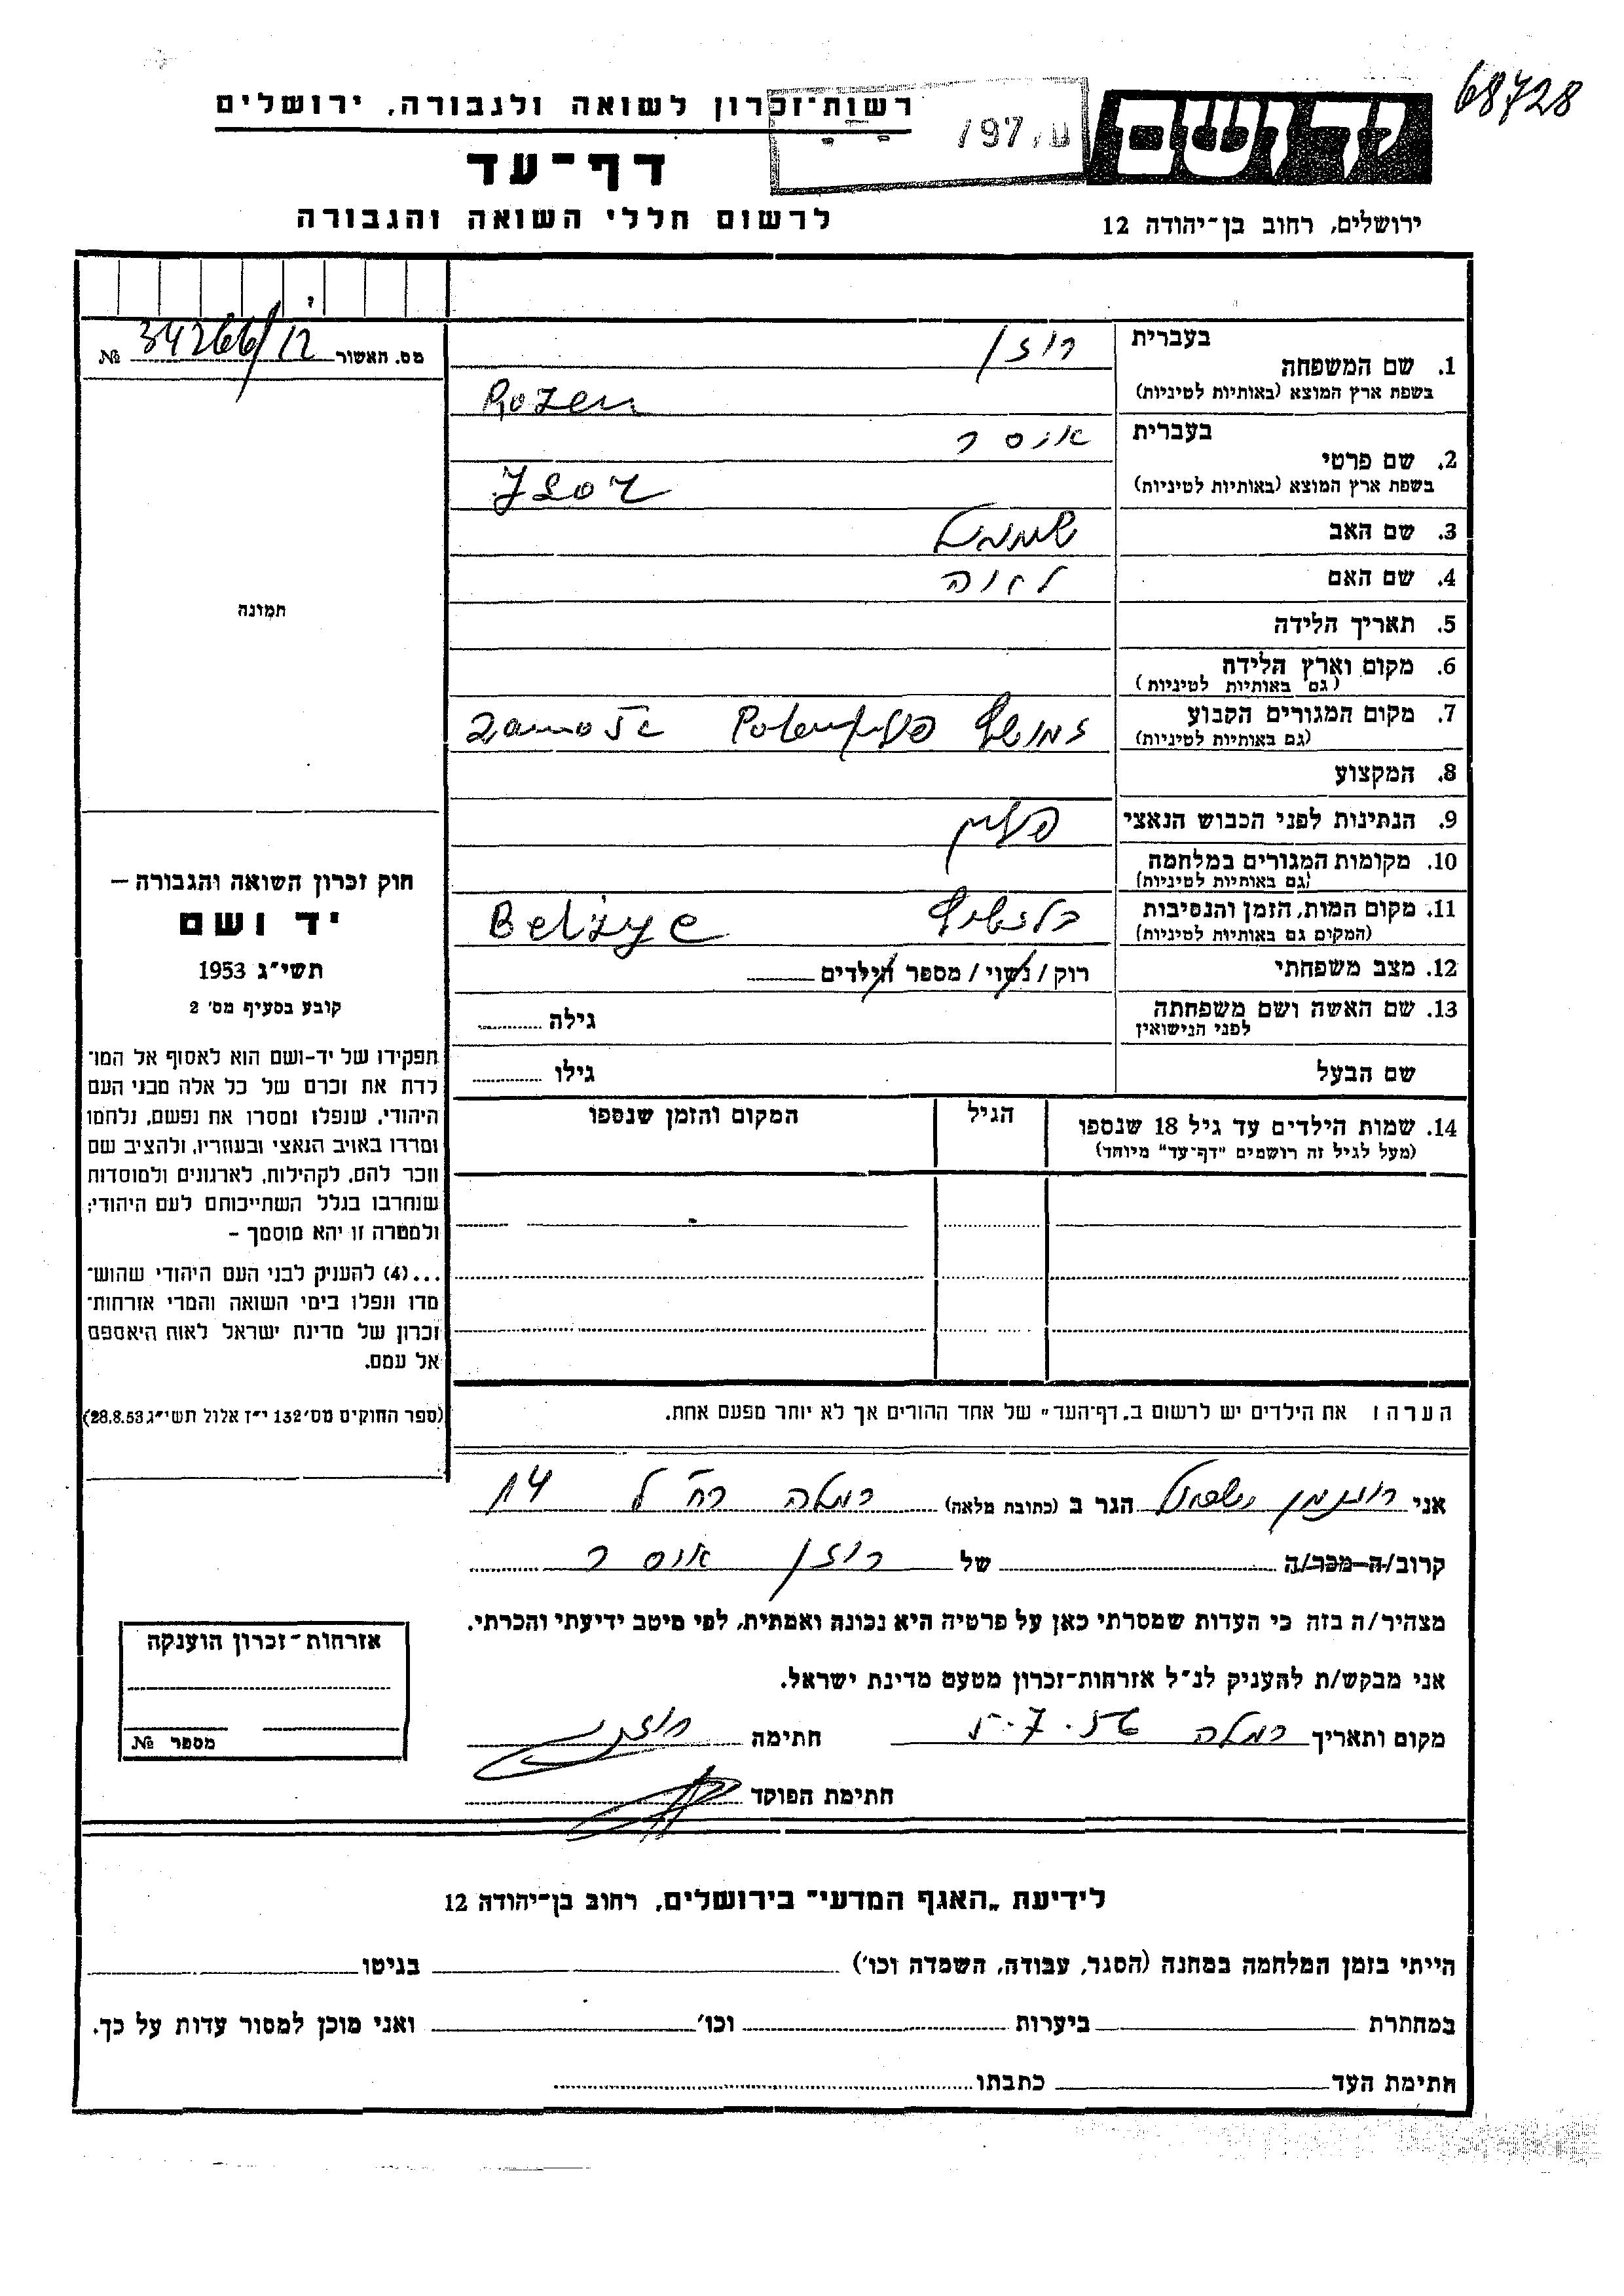 68728
רשות־זכרון לשואה ולגבורה, ירושלים
דף־עד
לרשום חללי השואה והגבורה
ירושלים, רחוב בן־יהודה 12
מס. האשור 34266/12 №
תמונה
חוק זכרון השואה והגבורה —
יד ושם
תשי״ג 1953
קובע בסעיף מס׳ 2
תפקידו של יד-ושם הוא לאסוף אל המו־
לדת את זכרם של כל אלה מבני העם
היהודי, שנפלו ומסרו את נפשם, נלחמו
ומרדו באויב הנאצי ובעוזריו, ולהציב שם
וזכר להם, לקהילות, לארגונים ולמוסדות
שנחרבו בגלל השתייכותם לעם היהודי;
ולמטרה זו יהא מוסמך –
...(4) להעניק לבני העם היהודי שהוש־
מדו ונפלו בימי השואה והמרי אזרחות־
זכרון של מדינת ישראל לאות היאספם
אל עמם.
(ספר החוקים מס׳ 132 י״ז אלול תשי״ג 28.8.53)
בעברית
1. שם המשפחה רוזן
בשפת ארץ המוצא (באותיות לטיניות) Rozen
בעברית
2. שם פרטי איסר
בשפת ארץ המוצא (באותיות לטיניות)
3. שם האב שמואל
4. שם האם
5. תאריך הלידה
6. מקום וארץ הלידה
(גם באותיות לטיניות)
7. מקום המגורים הקבוע
(גם באותיות לטיניות)
8. המקצוע
9. הנתינות לפני הכבוש הנאצי פולין
10. מקומות המגורים במלחמה
(גם באותיות לטיניות)
11. מקום המות, הזמן והנסיבות Belżyce
(המקום גם באותיות לטיניות)
12. מצב משפחתי רוק / נשוי / מספר הילדים
13. שם האשה ושם משפחתה גילה
לפני הנישואין
שם הבעל גילו
14. שמות הילדים עד גיל 18 שנספו הגיל המקום והזמן שנספו
(מעל לגיל זה רושמים "דף־עד" מיוחד)
הערה: את הילדים יש לרשום ב„דף־העד" של אחד ההורים אך לא יותר מפעם אחת.
אני הגר ב (כתובת מלאה) רמלה
קרוב/ה מכר/ה של רוזן איסר
מצהיר/ה בזה כי העדות שמסרתי כאן על פרטיה היא נכונה ואמתית, לפי מיטב ידיעתי והכרתי.
אני מבקש/ת להעניק לנ״ל אזרחות־זכרון מטעם מדינת ישראל.
מקום ותאריך רמלה 5.7.56 חתימה
חתימת הפוקד
אזרחות־זכרון הוענקה
מספר №
לידיעת „האגף המדעי" בירושלים, רחוב בן־יהודה 12
הייתי בזמן המלחמה במחנה (הסגר, עבודה, השמדה וכו׳) בגיטו
במחתרת ביערות וכו׳ ואני מוכן למסור עדות על כך.
חתימת העד כתבתו